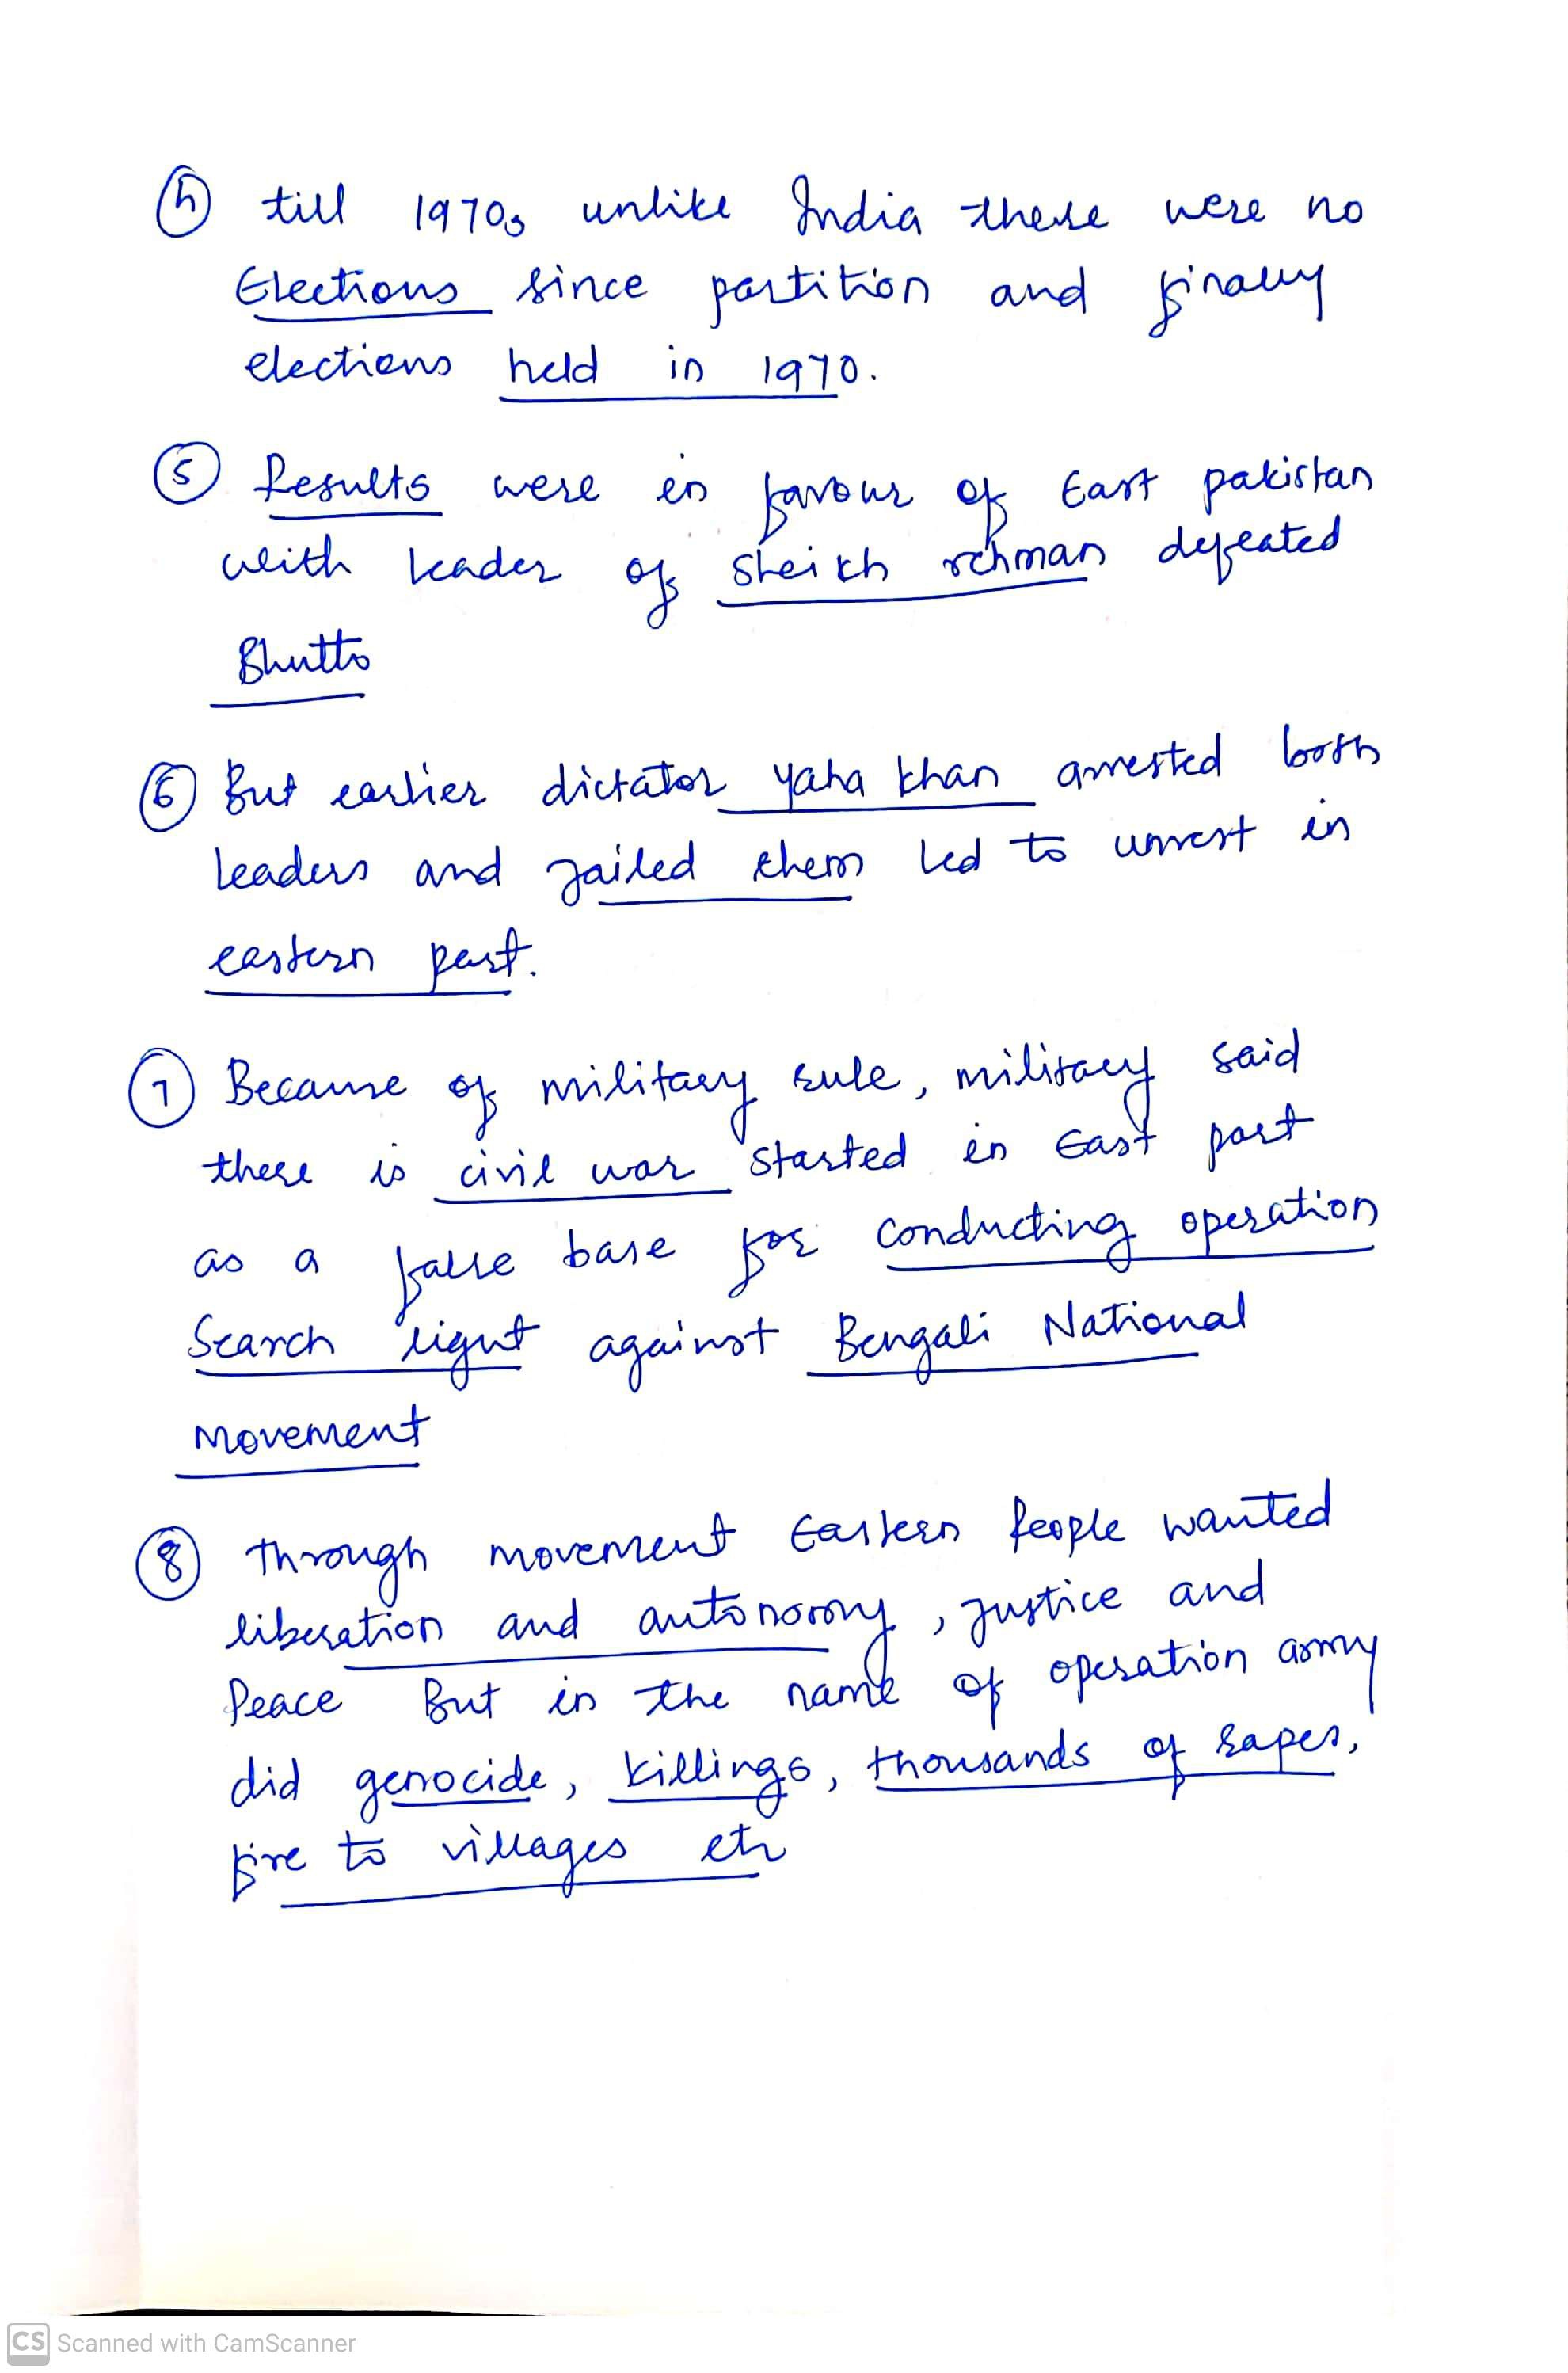 ④ till 1970s unlike India there were no
Elections since partition and finally
elections held in 1970.
⑤ Results were in favour of East pakistan
with leader of Sheikh rehman defeated
Bhutto
⑥ But earlier dictator yaha khan arrested both
leaders and jailed them led to unrest in
eastern part.
⑦ Because of military rule, military said
there is civil war started in East part
as a false base for conducting operation
Search light against Bengali National
Movement
⑧ Through movement Eastern People wanted
liberation and autonomy, justice and
Peace But in the name of operation army
did genocide, killings, thousands of rapes,
fire to villages etc
CS Scanned with CamScanner